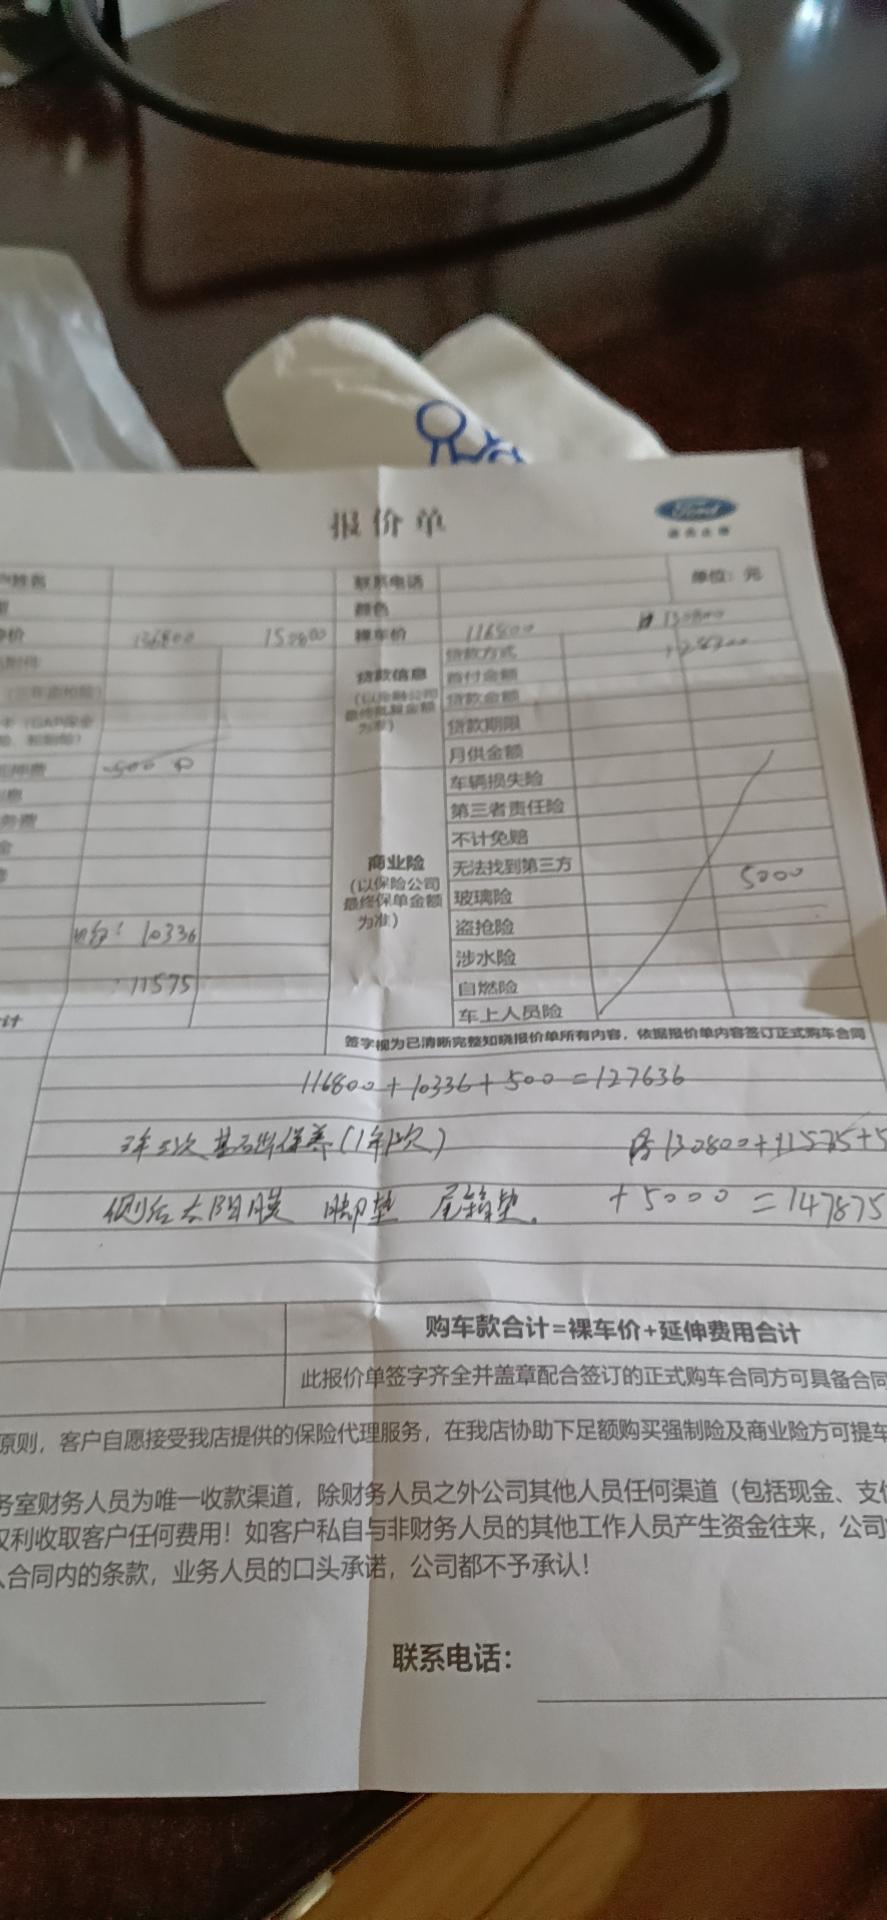 报价单
Ford
姓名 联系电话 单位：元
颜色
价 136800 150800 裸车价 116800 130800
贷款方式
贷款信息 首付金额
(以金融公司 贷款金额
最终批复金额
为准) 贷款期限
500 月供金额
车辆损失险
第三者责任险
不计免赔
商业险 无法找到第三方 5000
(以保险公司
最终保单金额 玻璃险
为准) 盗抢险
10336 涉水险
11575 自燃险
计 车上人员险
签字视为已清晰完整知晓报价单所有内容，依据报价单内容签订正式购车合同
116800+10336+500=127636
基础保养(1年1次) 130800+11575+5
侧后太阳膜 脚垫 尾箱垫。 +5000=147875
购车款合计=裸车价+延伸费用合计
此报价单签字齐全并盖章配合签订的正式购车合同方可具备合同
原则，客户自愿接受我店提供的保险代理服务，在我店协助下足额购买强制险及商业险方可提车
务室财务人员为唯一收款渠道，除财务人员之外公司其他人员任何渠道（包括现金、支付
权利收取客户任何费用！如客户私自与非财务人员的其他工作人员产生资金往来，公司
合同内的条款，业务人员的口头承诺，公司都不予承认！
联系电话：